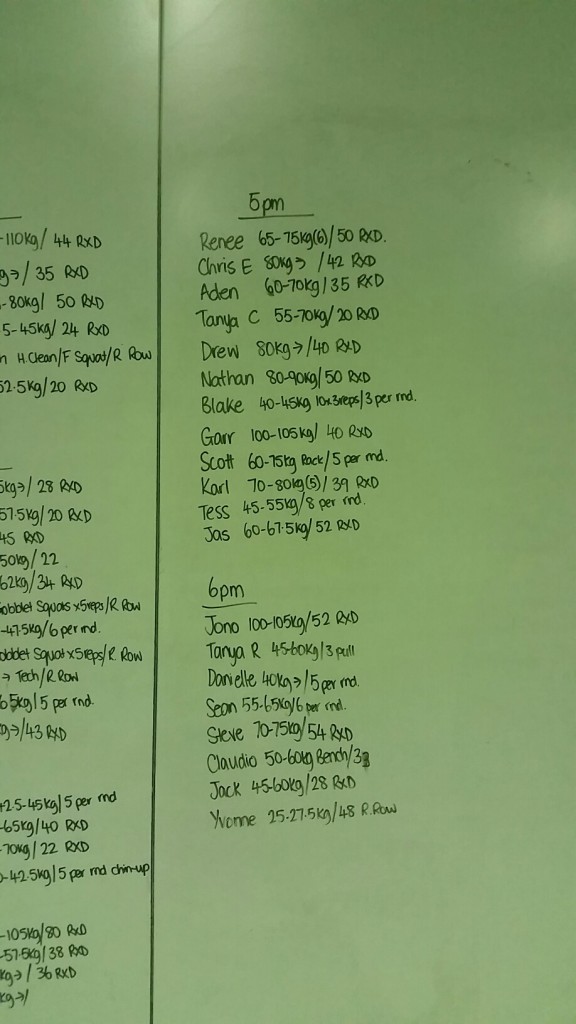 -110kg/ 44 RXD
g→/ 35 RXD
-80kg/ 50 RXD
5-45kg/ 24 RXD
n H.Clean/F Squat/R. Row
52.5kg/20 RXD
5kg→/ 28 RXD
57.5kg/20 RXD
45 RXD
50kg/ 22
62kg/34 RXD
Gobblet Squats x5reps/R.Row
-47.5kg/6 per rnd.
obblet Squat x5reps/R. Row
→ Tech/R.Row
65kg/5 per rnd.
g→/43 RXD
42.5-45kg/5 per rnd
-65kg/40 RXD
-70kg/ 22 RXD
-42.5kg/5 per rnd chin-up
-105kg/80 RXD
-57.5kg/38 RXD
kg→/ 36 RXD
kg→/
5pm
Renee 65-75kg(6)/50 RXD.
Chris E 80kg→ /42 RXD
Aden 60-70kg/35 RXD
Tanya C 55-70kg/20 RXD
Drew 80kg→/40 RXD
Nathan 80-90kg/50 RXD
Blake 40-45kg 10x3reps/3 per rnd.
Garr 100-105kg/ 40 RXD
Scott 60-75kg Rack/5 per rnd.
Karl 70-80kg(5)/39 RXD
Tess 45-55kg/8 per rnd.
Jas 60-67.5kg/52 RXD
6pm
Jono 100-105kg/52 RXD
Tanya R 45-60kg/3 pull
Danielle 40kg→/5 per rnd.
Sean 55-65kg/6 per rnd.
Steve 70-75kg/54 RXD
Claudio 50-60kg Bench/3
Jack 45-60kg/28 RXD
Yvonne 25-27.5kg/48 R.Row